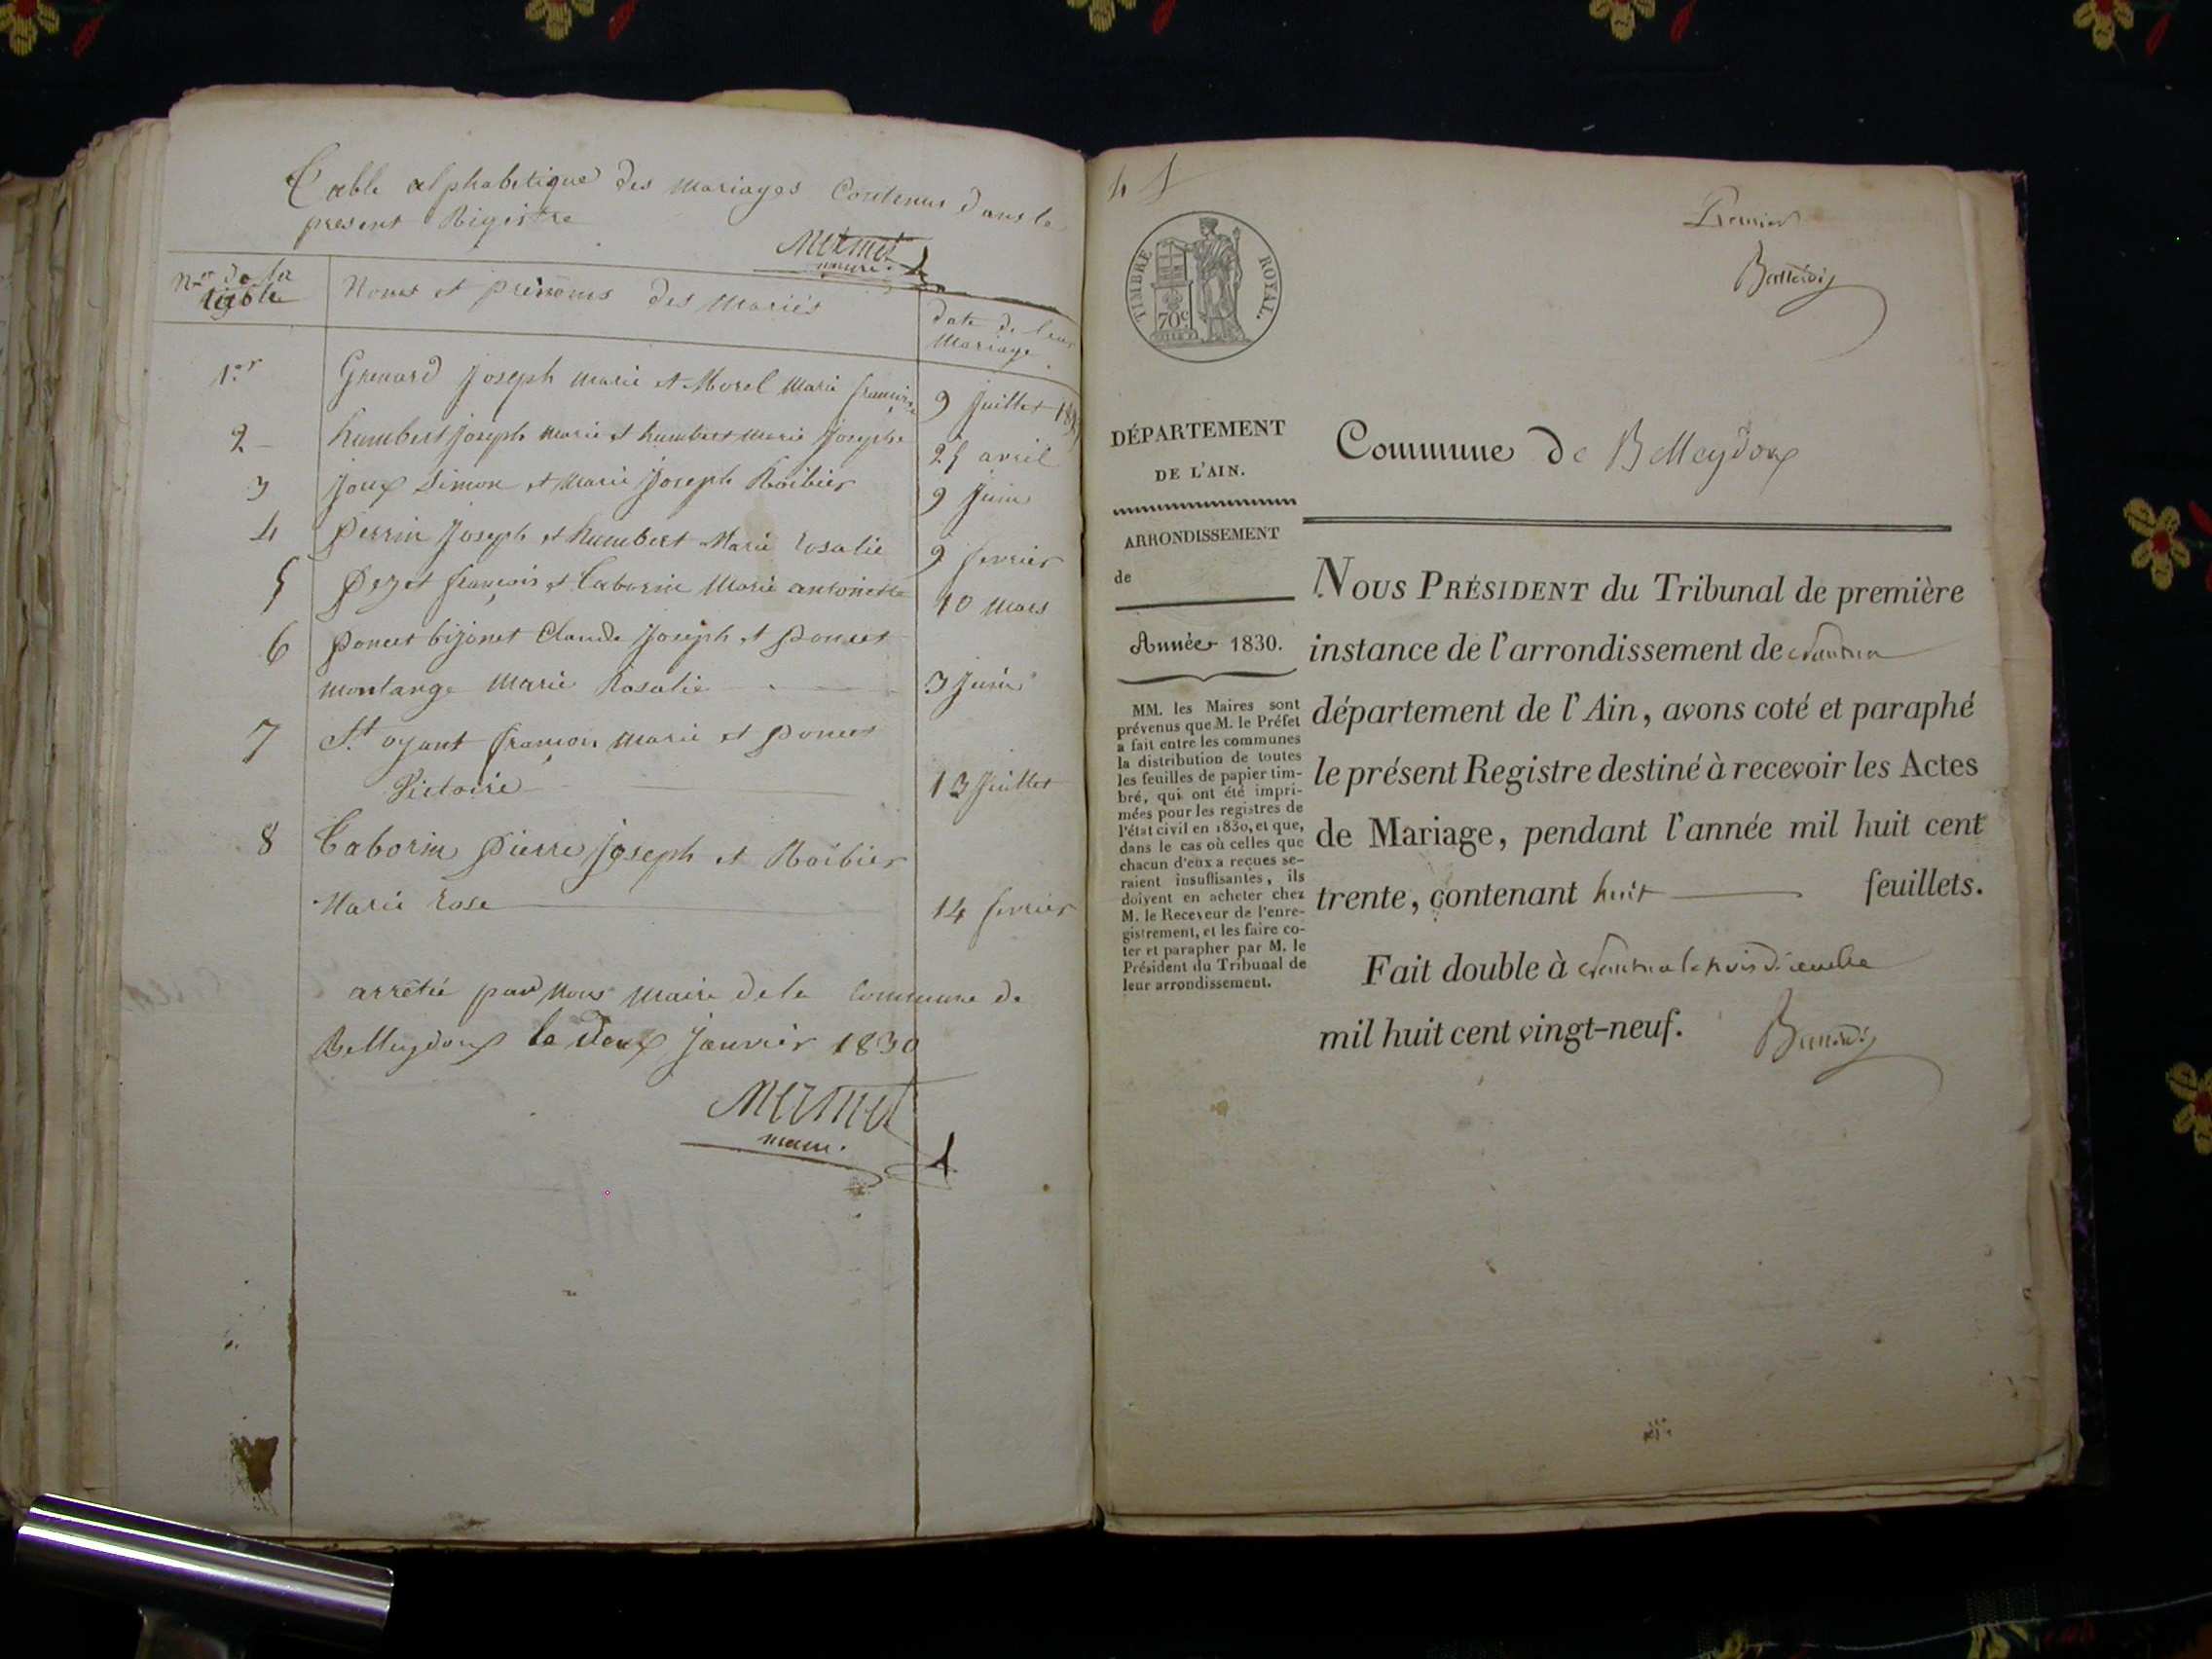 Table alphabetique des mariages Contenus dans le
present Registre
Mermet
maire.
Nos de la
table
Noms et prénoms des mariés
date de leur
Mariage
1er
Grenard Joseph marie et Morel Marie
9 Juillet
2
humbert Joseph marie et humbert marie Josephe
25 avril
3
Joux Simon et Marie Joseph Roibier
9 Juin
4
Perrin Joseph et humbert Marie rosalie
9 fevrier
5
françois et Taborin Marie antoinette
10 mars
6
poncet bijonet Claude Joseph et poncet
montange Marie Rosalie
3 Juin
7
St oyant françois marie et poncet
Victoire
13 Juillet
8
Taborin Pierre Joseph et Roibier
Marie rose
14 fevrier
arrêtée par nous maire de la Commune de
Belleydoux le deux janvier 1830
Mermet
maire.
Premier
TIMBRE ROYAL.
70c
DÉPARTEMENT
DE L'AIN.
ARRONDISSEMENT
de
Année 1830.
MM. les Maires sont
prévenus que M. le Préfet
a fait entre les communes
la distribution de toutes
les feuilles de papier tim-
bré, qui ont été impri-
mées pour les registres de
l'état civil en 1830, et que,
dans le cas où celles que
chacun d'eux a reçues se-
raient insuffisantes, ils
doivent en acheter chez
M. le Receveur de l'enre-
gistrement, et les faire co-
ter et parapher par M. le
Président du Tribunal de
leur arrondissement.
Commune de Belleydoux
NOUS PRÉSIDENT du Tribunal de première
instance de l'arrondissement de Nantua
département de l'Ain, avons coté et paraphé
le présent Registre destiné à recevoir les Actes
de Mariage, pendant l'année mil huit cent
trente, contenant huit feuillets.
Fait double à Nantua le trois décembre
mil huit cent vingt-neuf.